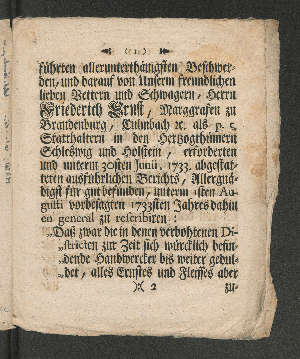 führten allerunterthänigsten Beschwer-
den, und darauf von Unserm freundlichen
lieben Vettern und Schwagern, Herrn
Friederich Ernst, Marggrafen zu
Brandenburg, Culmbach ꝛc. als p. t.
Statthaltern in den Hertzogthümern
Schleßwig und Hollstein, erforderten
und unterm 30sten Junii, 1733. abgestat-
teten ausführlichen Berichts, Allergnä-
digst für gut befunden, unterm 1sten Au-
gusti vorbesagten 1733sten Jahres dahin
en general zu rescribiren:
„Daß zwar die in denen verbohtenen Di-
„stricten zur Zeit sich würcklich befin-
„dende Handwercker bis weiter gedul-
„det, alles Ernstes und Fleisses aber
)( 2 zu-